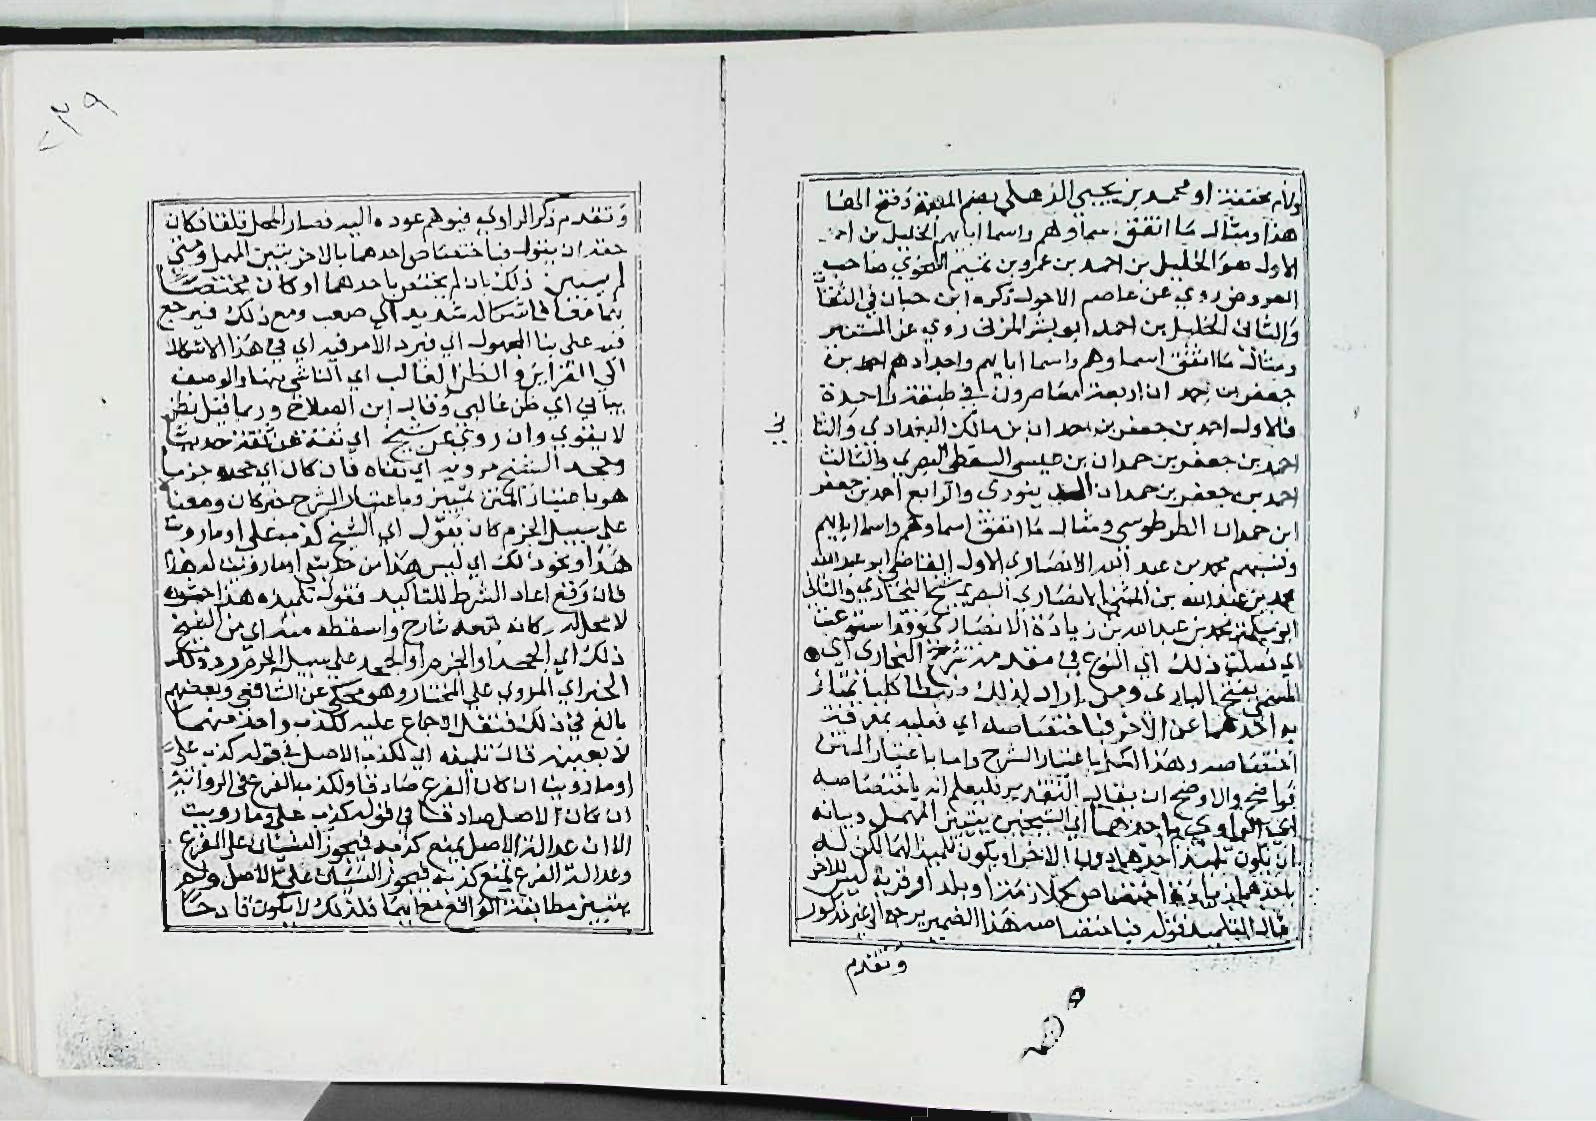 ولام مخففة او محمد بن يحيى الذهلي بضم المعجمة وفتح الها
هذا ومثال ما اتفق اسماوهم واسما ابايهم الخليل بن احمد
الاول هو الخليل بن احمد بن عمرو بن تميم النحوي صاحب
العروض روي عن عاصم الاحول ذكره ابن حبان في الثقات
والثاني الخليل بن احمد ابو بشر المزني روي عن المستنير
ومثال ما اتفق اسماوهم واسما ابايهم واجدادهم احمد بن
جعفر بن حمدان اربعة متعاصرون في طبقة واحدة
فالاول احمد بن جعفر بن حمدان بن مالك البغدادي والثاني
احمد بن جعفر بن حمدان بن عيسى السقطي البصري والثالث
احمد بن جعفر بن حمدان الدينوري والرابع احمد بن جعفر
ابن حمدان الطرطوسي ومثال ما اتفق اسماوهم واسما ابايهم
ونسبهم محمد بن عبد الله الانصاري الاول القاضي ابو عبد الله
محمد بن عبد الله بن المثني الانصاري البصري شيخ البخاري والثاني
ابو سلمة محمد بن عبد الله بن زياد الانصاري وقد استوعبت
اي ذلك اي النوع في مقدمة شرح البخاري اي
ومن اراد لذلك ضابطا كليا يمتاز
به احدهما عن الاخر فباختصاصه اي
اختصاصه وهذا باعتبار الشرح واما باعتبار المتن
فواضح والاوضح ان يقال التقدير فليعلم انه باختصاصه
اي الراوي باحدهما اي الشيخين يتبين المهمل وبيانه
ان يكون تلميذ احدهما دون الاخر او يكون تلميذا لهما لكن له
باحدهما زيادة اختصاص كملازمة او بلد او قرية ليس للاخر
قال التلميذ قوله فباختصاصه هذا الضمير يرجع الي غير مذكور
وتقدم
٢٣٩
وتقدم ذكر الراوي فيوهم عوده اليه فصار المحل قلقا فكان
حقه ان يقول فباختصاص احدهما بالاخر يتبين المهمل ومتي
لم يتبين ذلك بان لم يختص باحدهما او كان مختصا
بهما معا فاشكاله شديد اي صعب ومع ذلك فيرجع
فيه علي بنا المجهول اي فيرد الامر فيه اي في هذا الاشكال
الي القراين والظن الغالب اي الناشي بها والوصف
بياني اي ظن غالبي وقال ابن الصلاح وربما قيل بظن
لا يقوي وان روي عن شيخ اي ثقة عن ثقة حديثا
وجحد الشيخ مرويه اي نفاه فان كان اي جحده جزما
هو باعتبار المتن تمييز وباعتبار الشرح خبر كان ومعناه
علي سبيل الجزم كان يقول اي الشيخ كذب علي او ما رويت
هذا او نحو ذلك اي ليس هذا من حديثي او ما رويت له هذا
فان وقع اعاد الشرط للتاكيد فقول تلميذه هذا حشو
لا محل له وكانه تبعه شارح واسقطه منه اي من الشيخ
ذلك اي الجحد او الجزم او الجحد علي سبيل الجزم رد ذلك
الخبر اي المروي علي المختار وهو محكي عن الشافعي وبعضهم
بالغ في ذلك فنقل الاجماع عليه لكذب واحد منهما
لا بعينه قال تلميذه اي لكذب الاصل في قوله كذب علي
او ما رويت ان كان الفرع صادقا ولكذب الفرع في الرواية
ان كان الاصل صادقا في قوله كذب علي وما رويت
الا ان عدالة الاصل يمنع كذبه فيجوز النسيان علي الفرع
وعدالة الفرع تمنع كذبه فيجوز النسيان علي الاصل ولم
يتبين مطابقة الواقع مع ايهما فلذلك لا يكون قادحا